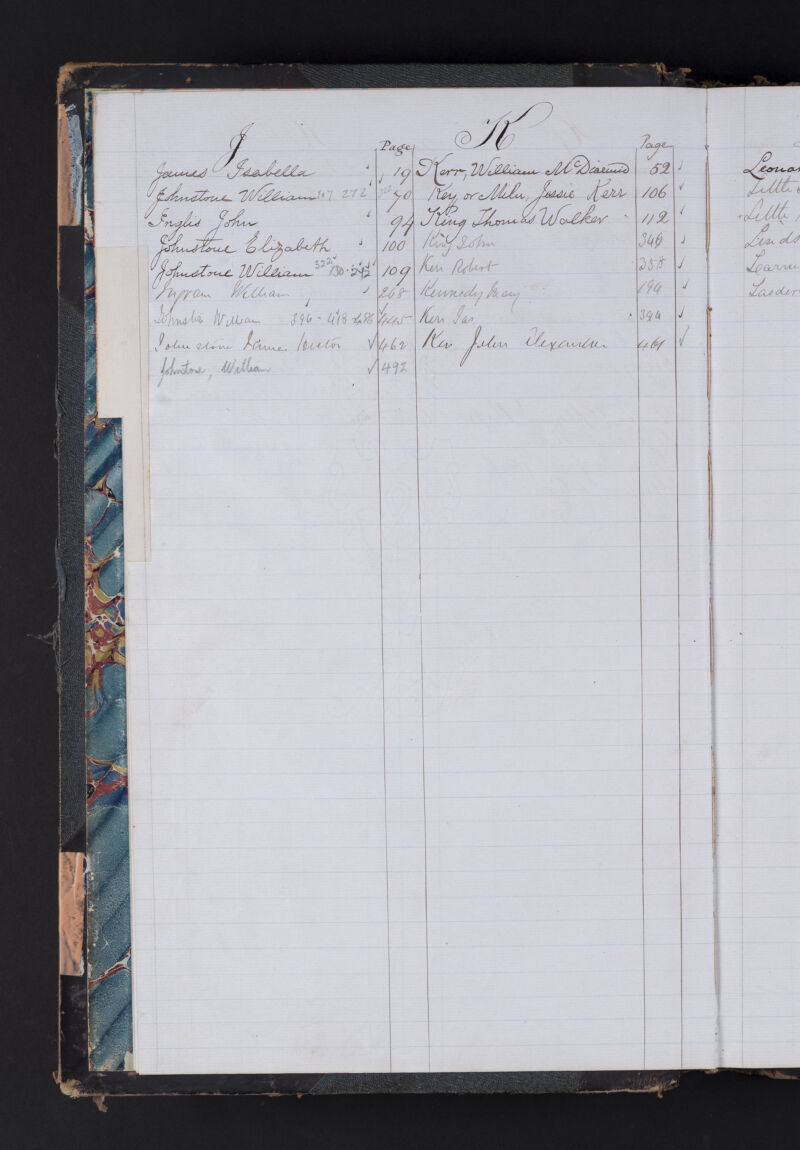 J
Page
James Isabella 19
Johnstone William 272 70
Inglis John 94
Johnstone Elizabeth 100
Johnstone William 322 130 109
Ingram William 268
William 396 - 418 - 486 445
Johnstone James 462
Johnstone, William 492
K
Page
Kerr, William McDiarmid 52
Key or Miln, Jessie Kerr 106
King Thomas Walker 112
King John 346
Kerr Robert 358
Kennedy Mary 194
Kerr Jas 394
Ker John Alexander 461
Leonar
Little
Little
Linds
Learm